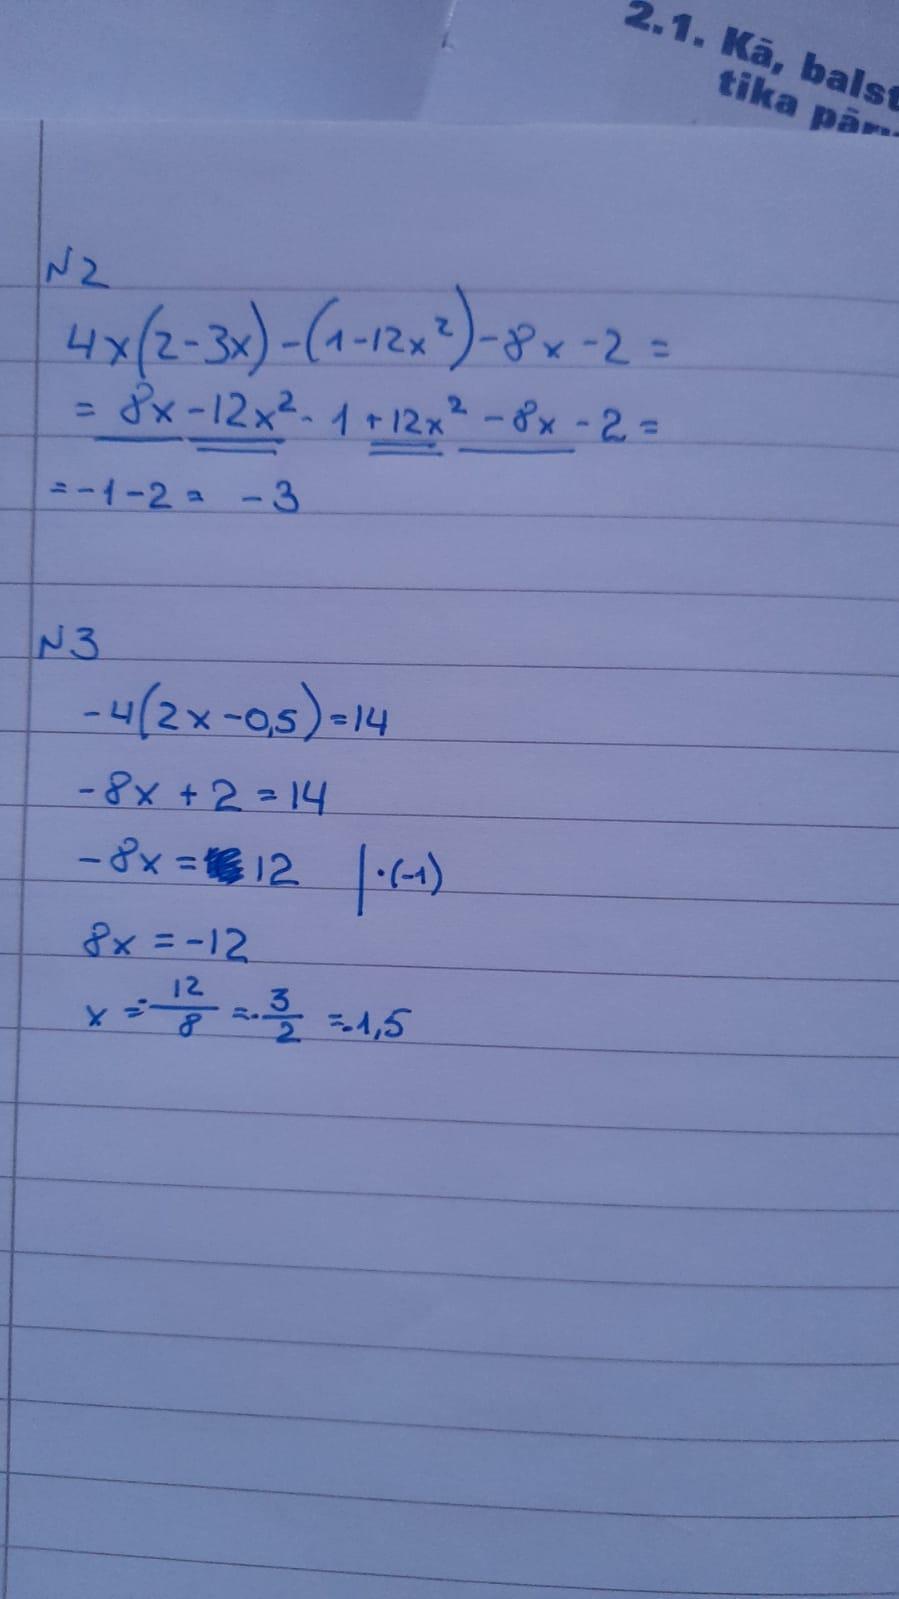 2.1. Kā, balst
tika pār
N2
4x(2-3x)-(1-12x²)-8x-2=
= 8x-12x²-1+12x²-8x-2=
=-1-2= -3
N3
-4(2x-0,5)=14
-8x+2=14
-8x=12 |·(-1)
8x=-12
x=-12/8=-3/2=-1,5